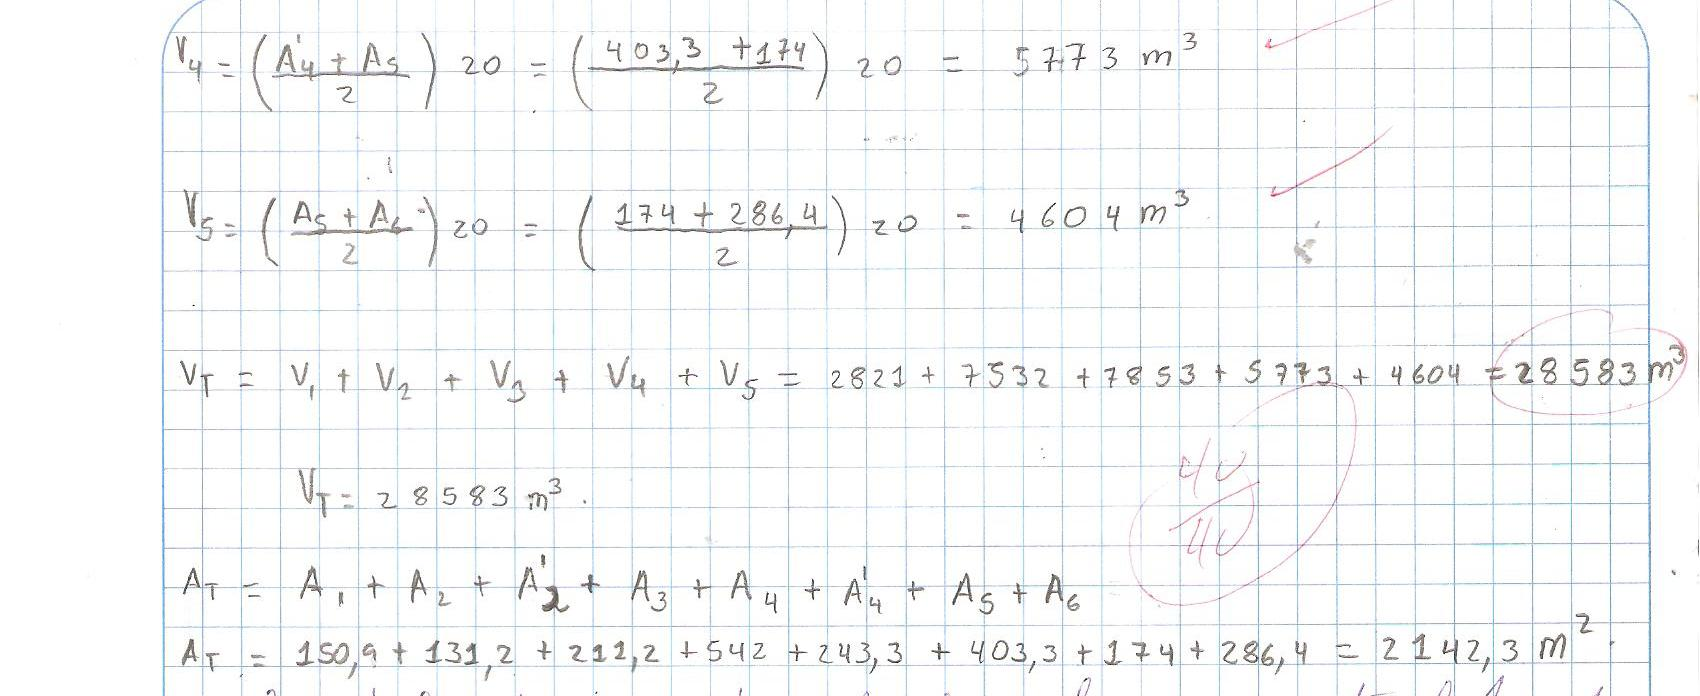 V₄ = (A'₄ + A₅ / 2) 20 = (403,3 + 174 / 2) 20 = 5773 m³
V₅ = (A₅ + A₆ / 2) 20 = (174 + 286,4 / 2) 20 = 4604 m³
V_T = V₁ + V₂ + V₃ + V₄ + V₅ = 2821 + 7532 + 7853 + 5773 + 4604 = 28583 m³
40/40
V_T = 28583 m³.
A_T = A₁ + A₂ + A'₂ + A₃ + A₄ + A'₄ + A₅ + A₆
A_T = 150,9 + 131,2 + 211,2 + 542 + 243,3 + 403,3 + 174 + 286,4 = 2142,3 m².